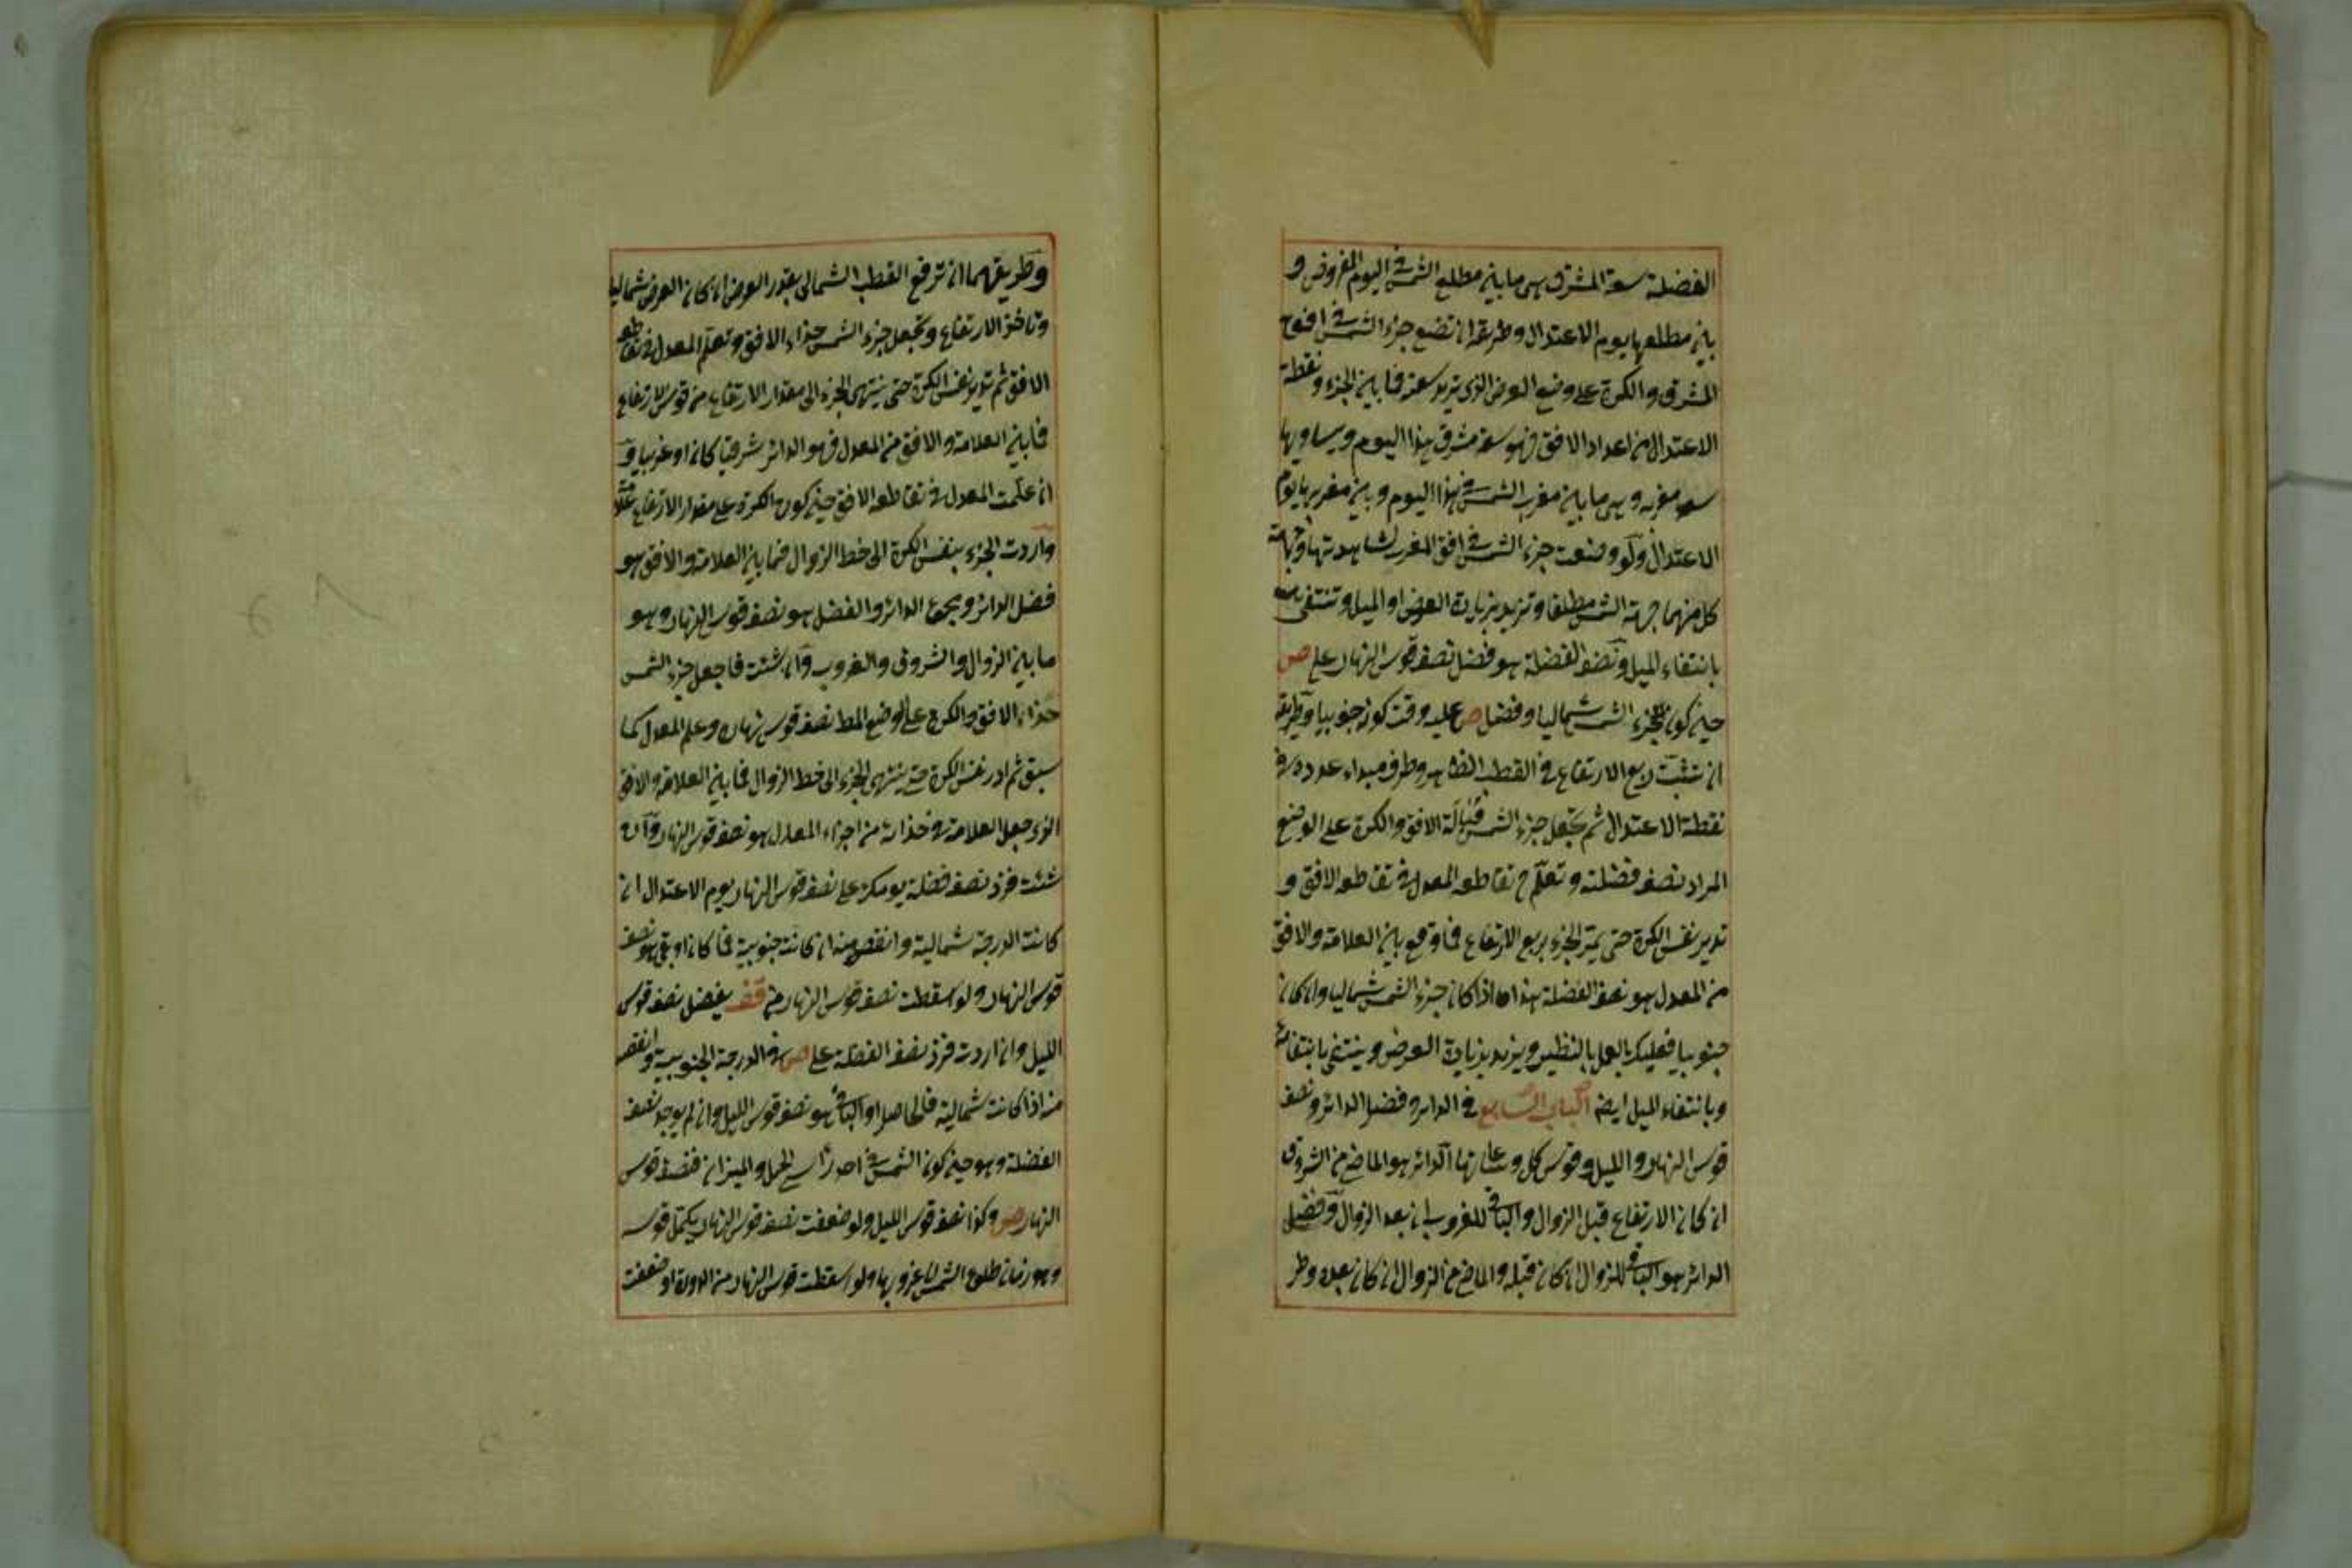 الفضلة سعة المشرق هى ما بين مطلع الشمس فى اليوم المفروض و
بين مطلعها يوم الاعتدال وطريقه ان تضع جزء الشمس فى افق
المشرق والكرة على وضع العرض الذى تريد سعته فما بين الجزء ونقطة
الاعتدال من اعداد الافق فهو سعة مشرق هذا اليوم ويساويها
سعة مغربه وهى ما بين مغرب الشمس فى هذا اليوم وبين مغربها يوم
الاعتدال ولو وضعت جزء الشمس فى افق المغرب لشاهدتها وجهة
كل منهما جهة الشمس مطلقا وتزيد بزيادة العرض او الميل وتنتفى
بانتفاء الميل ونصف الفضلة هو فضل نصف قوس النهار على ص
حين كون جزء الشمس شماليا وفضل ص عليه وقت كونه جنوبيا وطريقه
ان تثبت ربع الارتفاع فى القطب الظاهر وطرف مبداء عدده فى
نقطة الاعتدال ثم تجعل جزء الشمس قبالة الافق والكرة على الوضع
المراد نصف فضلته وتعلم ح تقاطع المعدل فى تقاطعه الافق و
تدير نفس الكرة حتى يمر الجزء بربع الارتفاع فما وقع بين العلامة والافق
من المعدل هو نصف الفضلة هذا اذا كان جزء الشمس شماليا وان كان
جنوبيا فعليك بالعمل بالنظير ويزيد بزيادة العرض وينتفى بانتفائه
وبانتفاء الميل ايضا الباب السابع فى الدائر وفضل الدائر ونصف
قوس النهار والليل وقوس كل وساعاتها الدائر هو الماضى من الشروق
ان كان الارتفاع قبل الزوال والباقى للغروب ان بعد الزوال وفضل
الدائر هو الباقى للزوال ان كان قبله والماضى من الزوال ان كان بعده وطر
وطريقهما ان ترفع القطب الشمالى بقدر العرض ان كان العرض شماليا
وتاخذ الارتفاع وتجعل جزء الشمس حذاء الافق وتعلم المعدل فى تقاطع
الافق ثم تدير نفس الكرة حتى ينتهى الجزء الى مقدار الارتفاع من قوس الارتفاع
فما بين العلامة والافق من المعدل فهو الدائر شرقيا كان او غربيا و
ان علمت المعدل فى تقاطعه الافق حين كون الكرة على مقدار الارتفاع علامة
وأردت الجزء بنفس الكرة الى خط الزوال فما بين العلامة والافق هو
فضل الدائر ومجموع الدائر والفضل هو نصف قوس النهار وهو
ما بين الزوال والشروق والغروب وان شئت فاجعل جزء الشمس
حذاء الافق والكرة على الوضع المط نصف قوس نهاره وعلم المعدل كما
سبق ثم ادر نفس الكرة حتى ينتهى الجزء الى خط الزوال فما بين العلامة والافق
الذى جعل العلامة فى حذائه من اجزاء المعدل هو نصف قوس النهار وان
شئت فزد نصف فضلة يومك على نصف قوس النهار يوم الاعتدال ان
كانت الدرجة شمالية وانقص منه ان كانت جنوبية فما كان او بقى هو نصف
قوس النهار ولو اسقطت نصف قوس النهار من قف يفضل نصف قوس
الليل وان اردت فزد نصف الفضلة على ص فى الدرجة الجنوبية وانقص
منه اذا كانت شمالية فالحاصل او الباقى هو نصف قوس الليل وان لم يوجد نصف
الفضلة وهو حين كون الشمس فى احد رأسى الحمل والميزان فنصف قوس
النهار ص وكذا نصف قوس الليل ولو ضعفت نصف قوس النهار يكمل قوسه
وهو زمان طلوع الشمس الى غروبها ولو اسقطت قوس النهار من الدورة او ضعفت